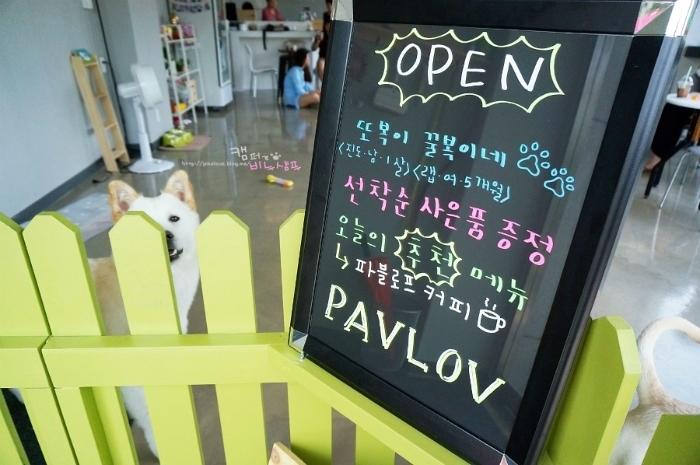 OPEN
또복이 꿀복이네
<진도·남·1살> <랩·여·5개월>
선착순 사은품 증정
오늘의 추천 메뉴
↳ 파블로프 커피
PAVLOV
캠퍼
http://